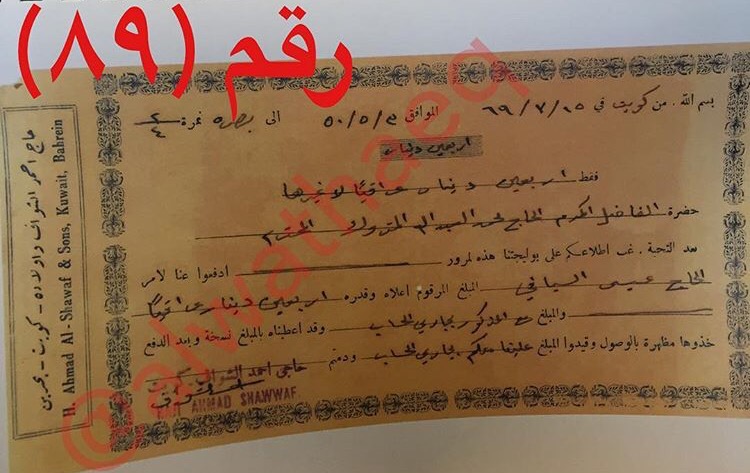 رقم (٨٩)
بسم الله. من كويت في ١٥/٧/٦٩ الموافق ٣/٥/٥٠ الى بصره نمرة ٢/٤
اربعين دينار
فقط اربعين دينار عراقيا لاغيرها
حضرة الفاضل المكرم الحاج المحترم
بعد التحية. غب اطلاعكم على بوليجتنا هذه لمرور ادفعوا عنا لأمر
الحاج عيسى المبلغ المرقوم اعلاه وقدره اربعين دينار عراقيا
والمبلغ من المذكور بجاري الحساب وقد اعطيناه بالمبلغ نسخة وبعد الدفع
خذوها مظهرة بالوصول وقيدوا المبلغ علينا معكم بجاري الحساب ودمتم
حاجي احمد
HAJI AHMAD SHAWWAF.
حاج احمد الشواف واولاده - كويت - بحرين
H. Ahmad Al-Shawaf & Sons, Kuwait, Bahrein
@alwathaeq